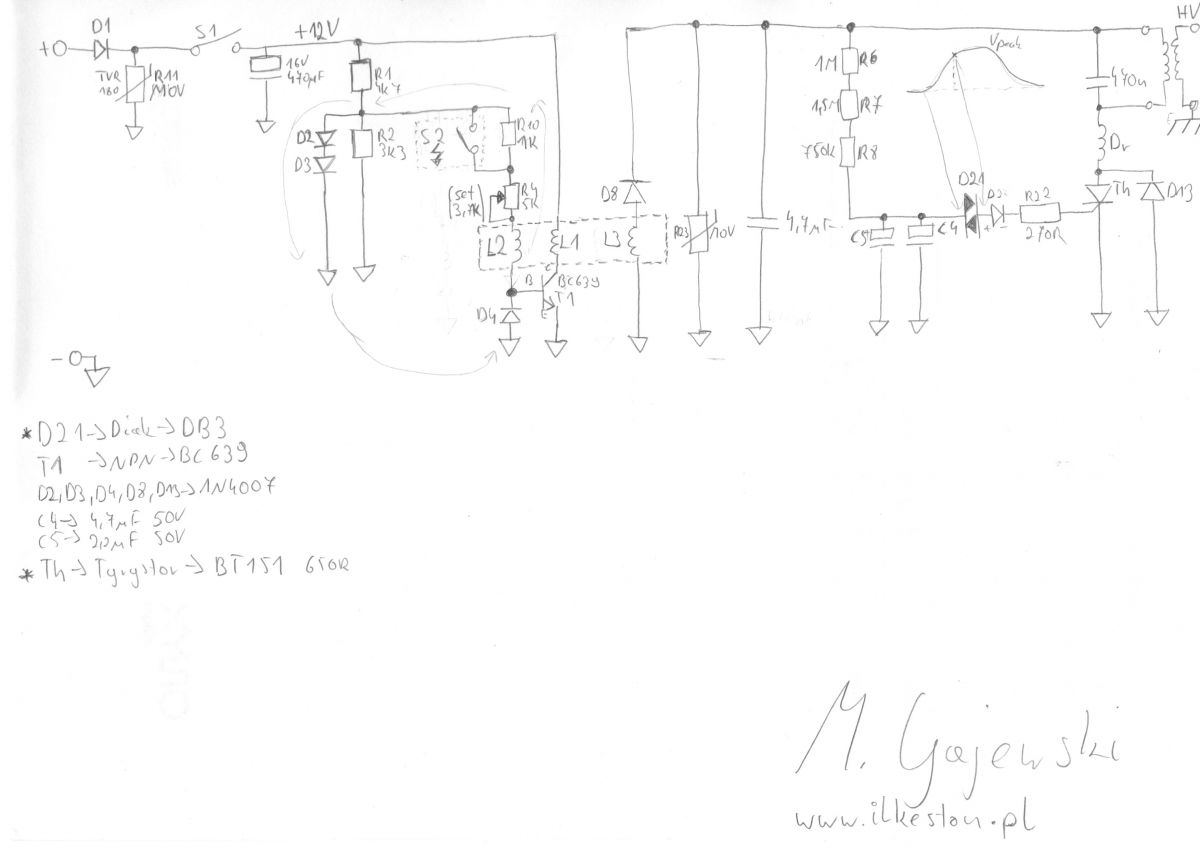 D1
S1
+12V
+
TVR
180
R11
16V
470µF
R1
4K7
D2
D3
R2
3K3
S2
R10
1K
(set
3,7K
R4
5K
L2
L1
L3
B
C
E
BC639
T1
D4
D8
R23
4,7µF
1M
R6
1,5M
R7
750k
R8
C5
C4
D21
R22
270R
Vpeak
HV
470n
Dr
Th
D13
-
* D21→Diak→DB3
T1 →NPN→BC639
D2,D3,D4,D8,D13→1N4007
C4→ 4,7µF 50V
C5→ 2,2µF 50V
* Th→Tyrystor→BT151 650R
M. Gajewski
www.ilkeston.pl